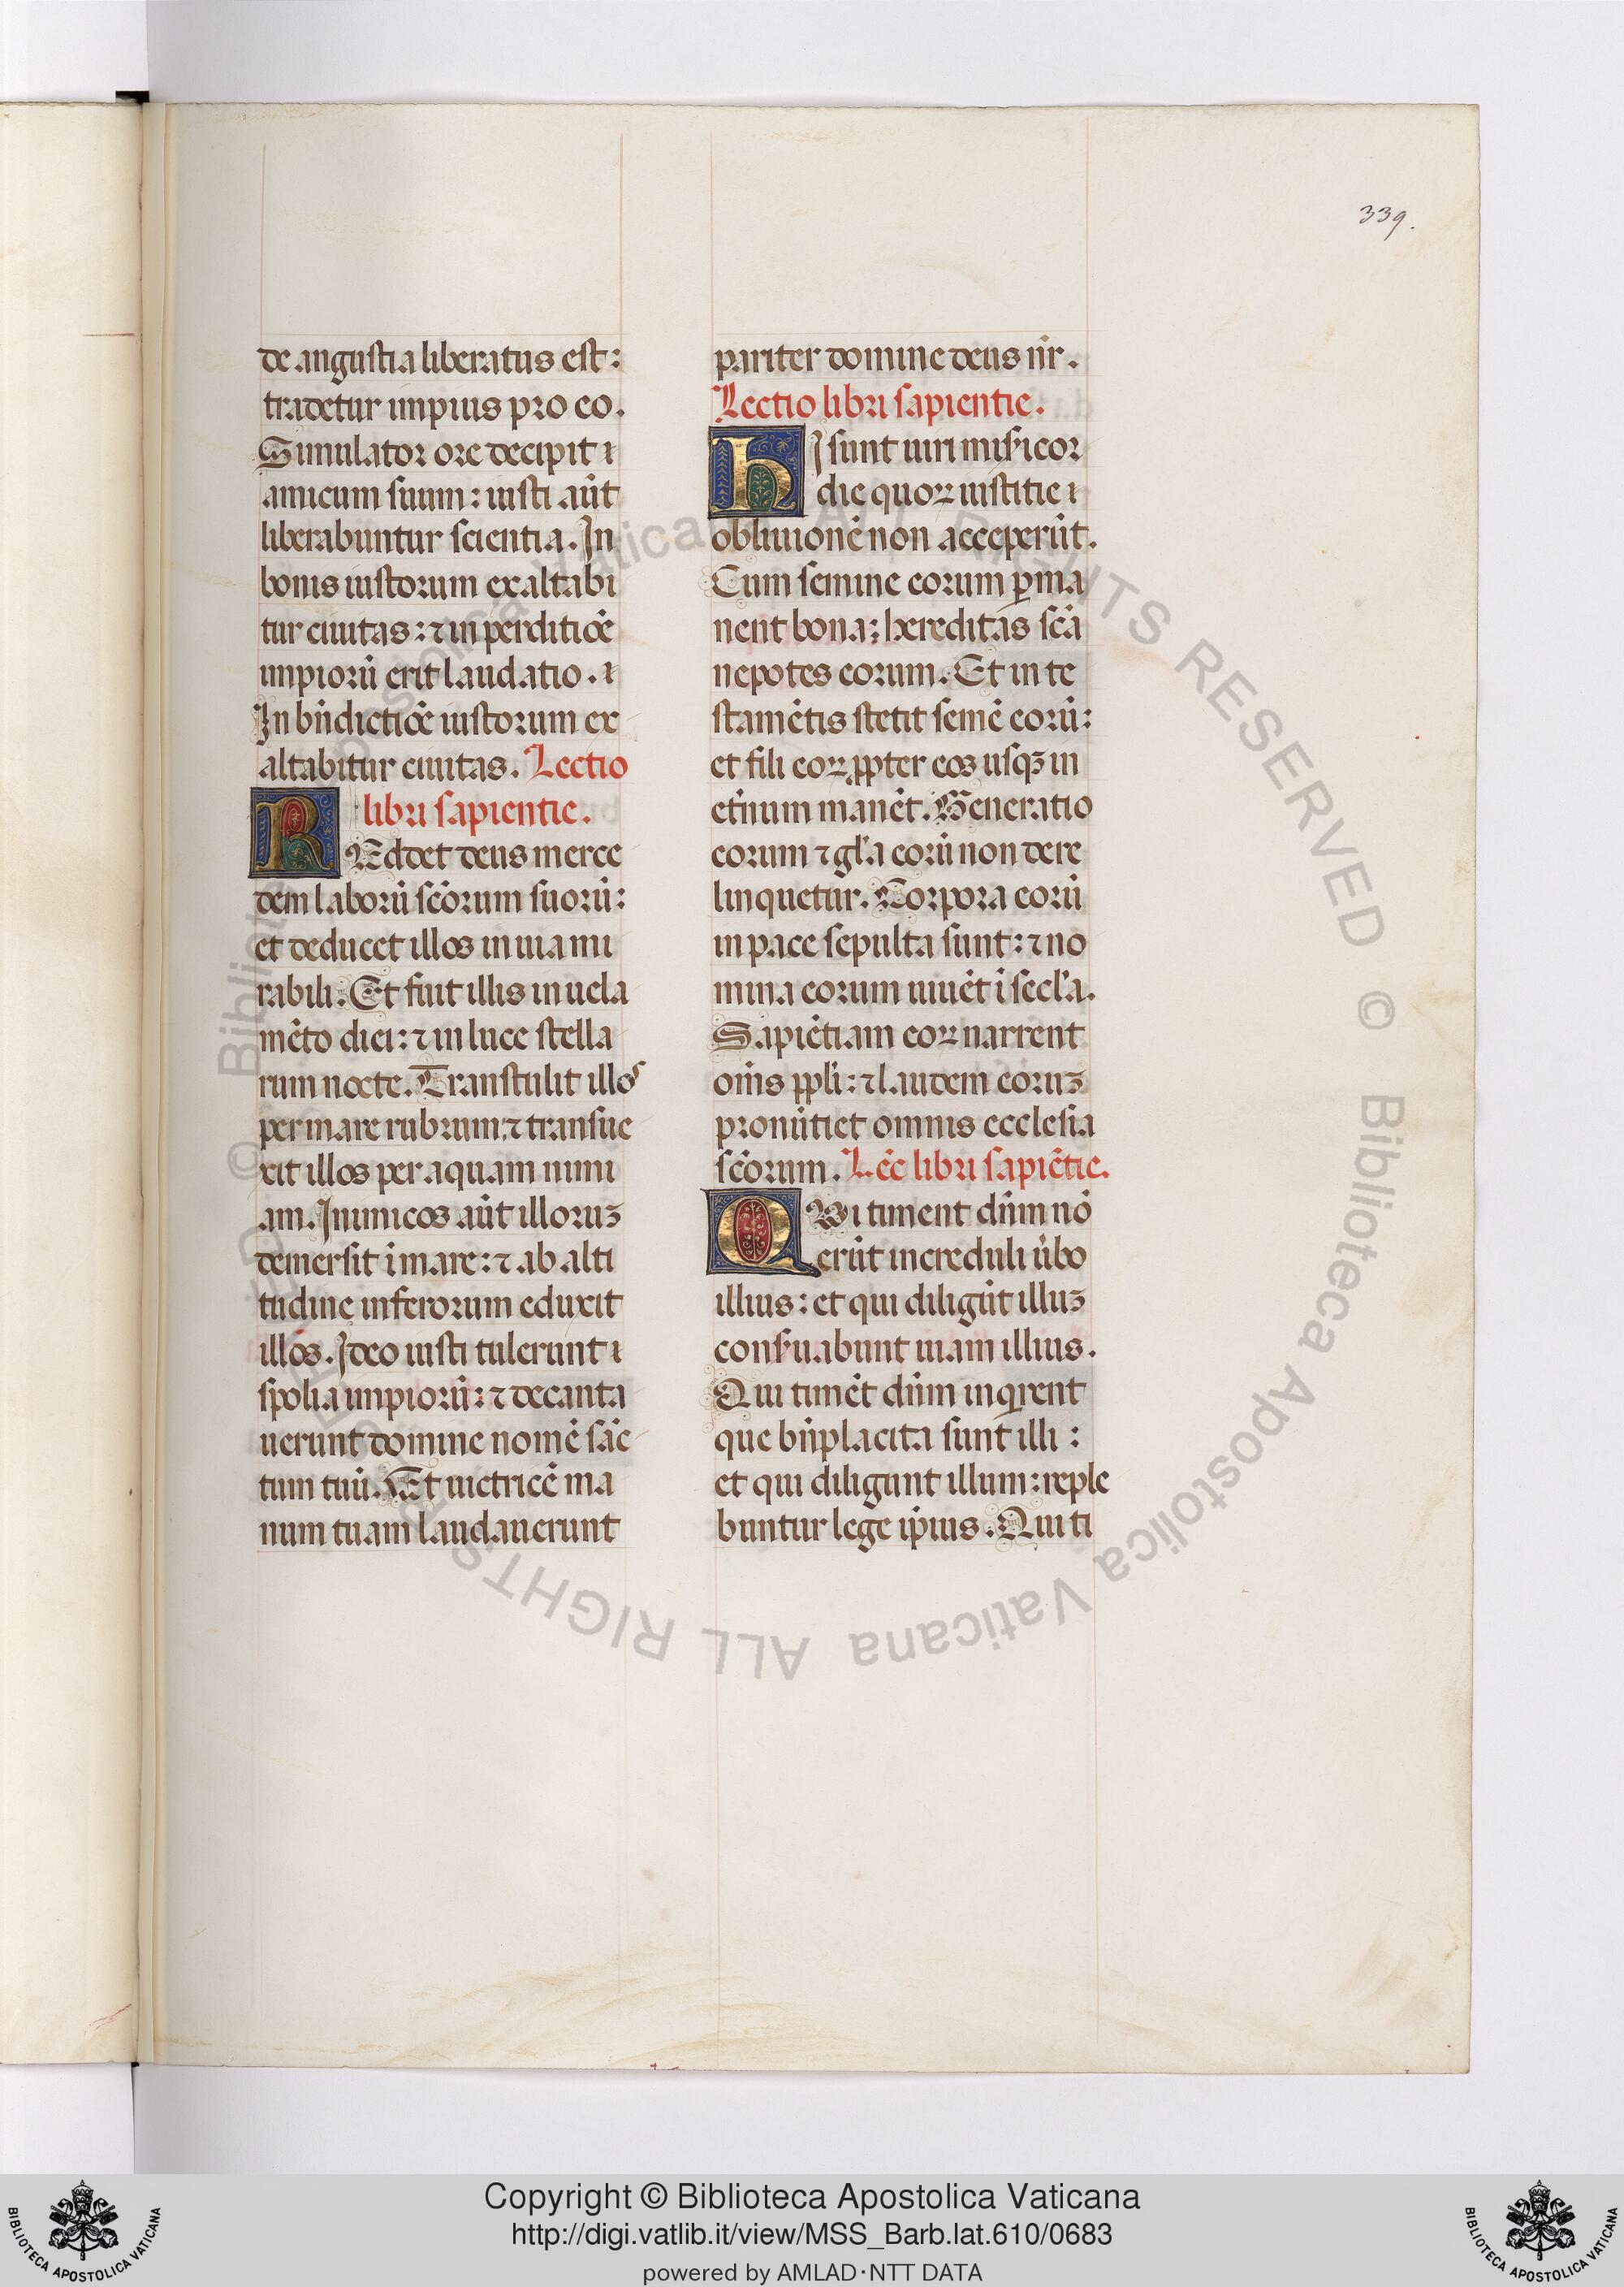 339.
de angustia liberatus est:
tradetur impius pro eo.
Simulator ore decipit
amicum suum: iusti aūt
liberabuntur scientia. In
bonis iustorum exaltabi
tur ciuitas: ⁊ in perditiōē
impiorū erit laudatio.
In bn̄dictiōē iustorum ex
altabitur ciuitas. Lectio
libri sapientie.
REddet deus merce
dem laborū scōrum suorū:
et deducet illos in uia mi
rabili. Et fuit illis in uela
mēto diei: ⁊ in luce stella
rum nocte. Transtulit illos
per mare rubrum: ⁊ transue
xit illos per aquam nimi
am. Inimicos aūt illoruꝫ
demersit ī mare: ⁊ ab alti
tudine inferorum eduxit
illos. Ideo iusti tulerunt
spolia impiorū: ⁊ decanta
uerunt domine nomē sāc
tum tuū. Et uictricē ma
num tuam laudauerunt
pariter domine deus nr̄.
Lectio libri sapientie.
hI sunt uiri misicor
die quoꝝ iustitie
obliuionē non acceperūt.
Cum semine eorum ꝑma
nent bona: hereditas scā
nepotes eorum. Et in te
stamētis stetit semē eorū:
et fili eoꝝ ꝓpter eos usqꝫ in
et̄num manēt. Generatio
eorum ⁊ gl̄a eorū non dere
linquetur. Corpora eorū
in pace sepulta sunt: ⁊ no
mina eorum uiuēt ī secl̄a.
Sapiētiam eoꝝ narrent
om̄s ppl̄i: ⁊ laudem eoruꝫ
pronūtiet omnis ecclesia
scōrum. Lēc libri sapiētie.
QVi timent dn̄m nō
erūt increduli ūbo
illius: et qui diligūt illuꝫ
conſ̄uabunt uiam illius.
Qui timēt dn̄m inqrent
que bn̄placita sunt illi:
et qui diligunt illum: reple
buntur lege ip̄ius. Qui ti
© Biblioteca Apostolica Vaticana ALL RIGHTS RESERVED © Biblioteca Apostolica Vaticana ALL RIGHTS RESERVED
Copyright © Biblioteca Apostolica Vaticana
http://digi.vatlib.it/view/MSS_Barb.lat.610/0683
powered by AMLAD·NTT DATA
BIBLIOTECA APOSTOLICA VATICANA
BIBLIOTECA APOSTOLICA VATICANA